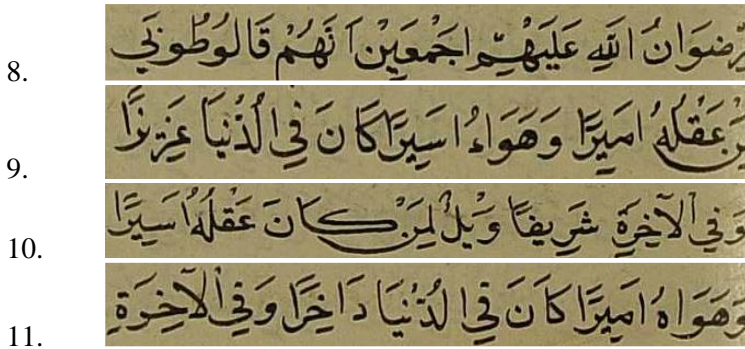 8. رِضوَانُ اللّٰهِ عَلَيْهِمْ اَجْمَعِيْنَ اَنَّهُمْ قَالُوْ طُوْبٰى
9. عَقْلُهُ اَمِيْرًا وَهَوَاءُ اَسِيْرًا كَانَ فِى الدُّنْيَا عَزِيْزًا
10. وَفِى الْاٰخِرَةِ شَرِيفًا وَيْلٌ لِمَنْ كَانَ عَقْلُهُ اَسِيْرًا
11. وَهَوَاهُ اَمِيْرًا كَانَ فِى الدُّنْيَا دَاخِرًا وَفِى الْاٰخِرَةِ